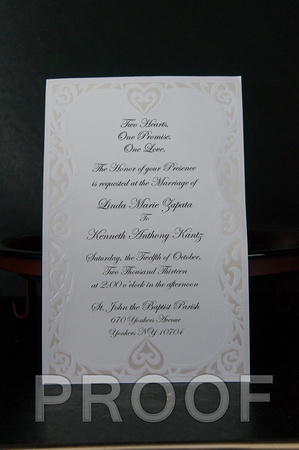 Two Hearts,
One Promise,
One Love,
The Honor of your Presence
is requested at the Marriage of
Linda Marie Zapata
To
Kenneth Anthony Kantz
Saturday, the Twelfth of October,
Two Thousand Thirteen
at 2:00 o'clock in the afternoon
St. John the Baptist Parish
670 Yonkers Avenue
Yonkers NY 10704
PROOF